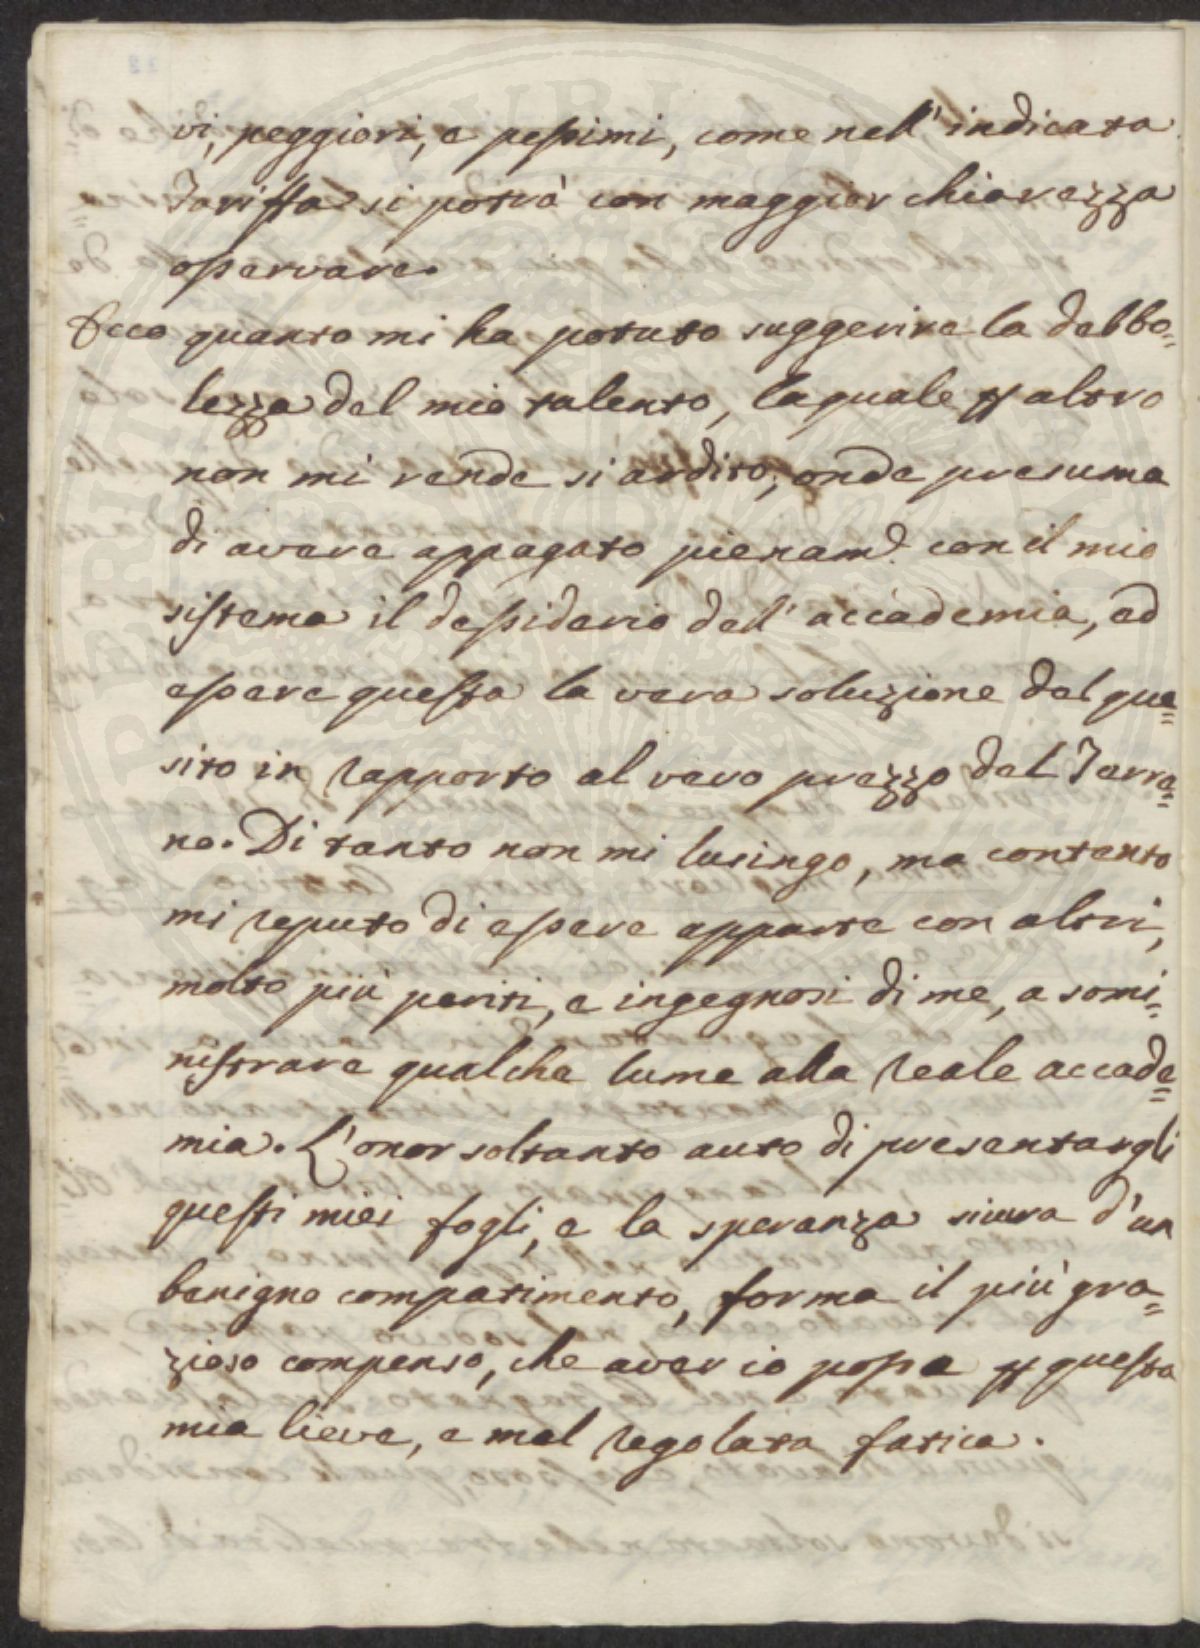 vi, peggiori, e pessimi, come nell' indicata
Tariffa si potrà con maggior chiarezza
osservare.
Ecco quanto mi ha potuto suggerire la debbo=
lezza del mio talento, laquale ꝑ altro
non mi rende si ardito, onde presuma
di avere appagato pienam.e con il mio
sistema il dessiderio dell' accademia, ed
essere questa la vera soluzione del que=
sito in rapporto al vero prezzo del Terre=
no. Di tanto non mi lusingo, ma contento
mi reputo di essere apparte con altri,
molto più periti, e ingegnosi di me, a somi=
nistrare qualche lume alla reale accade=
mia. L'onor soltanto auto di presentargli
questi miei fogli, e la speranza sicura d'un
benigno compatimento, forma il più gra=
zioso compenso, che aver io possa ꝑ questa
mia lieve, e mal regolata fatica.